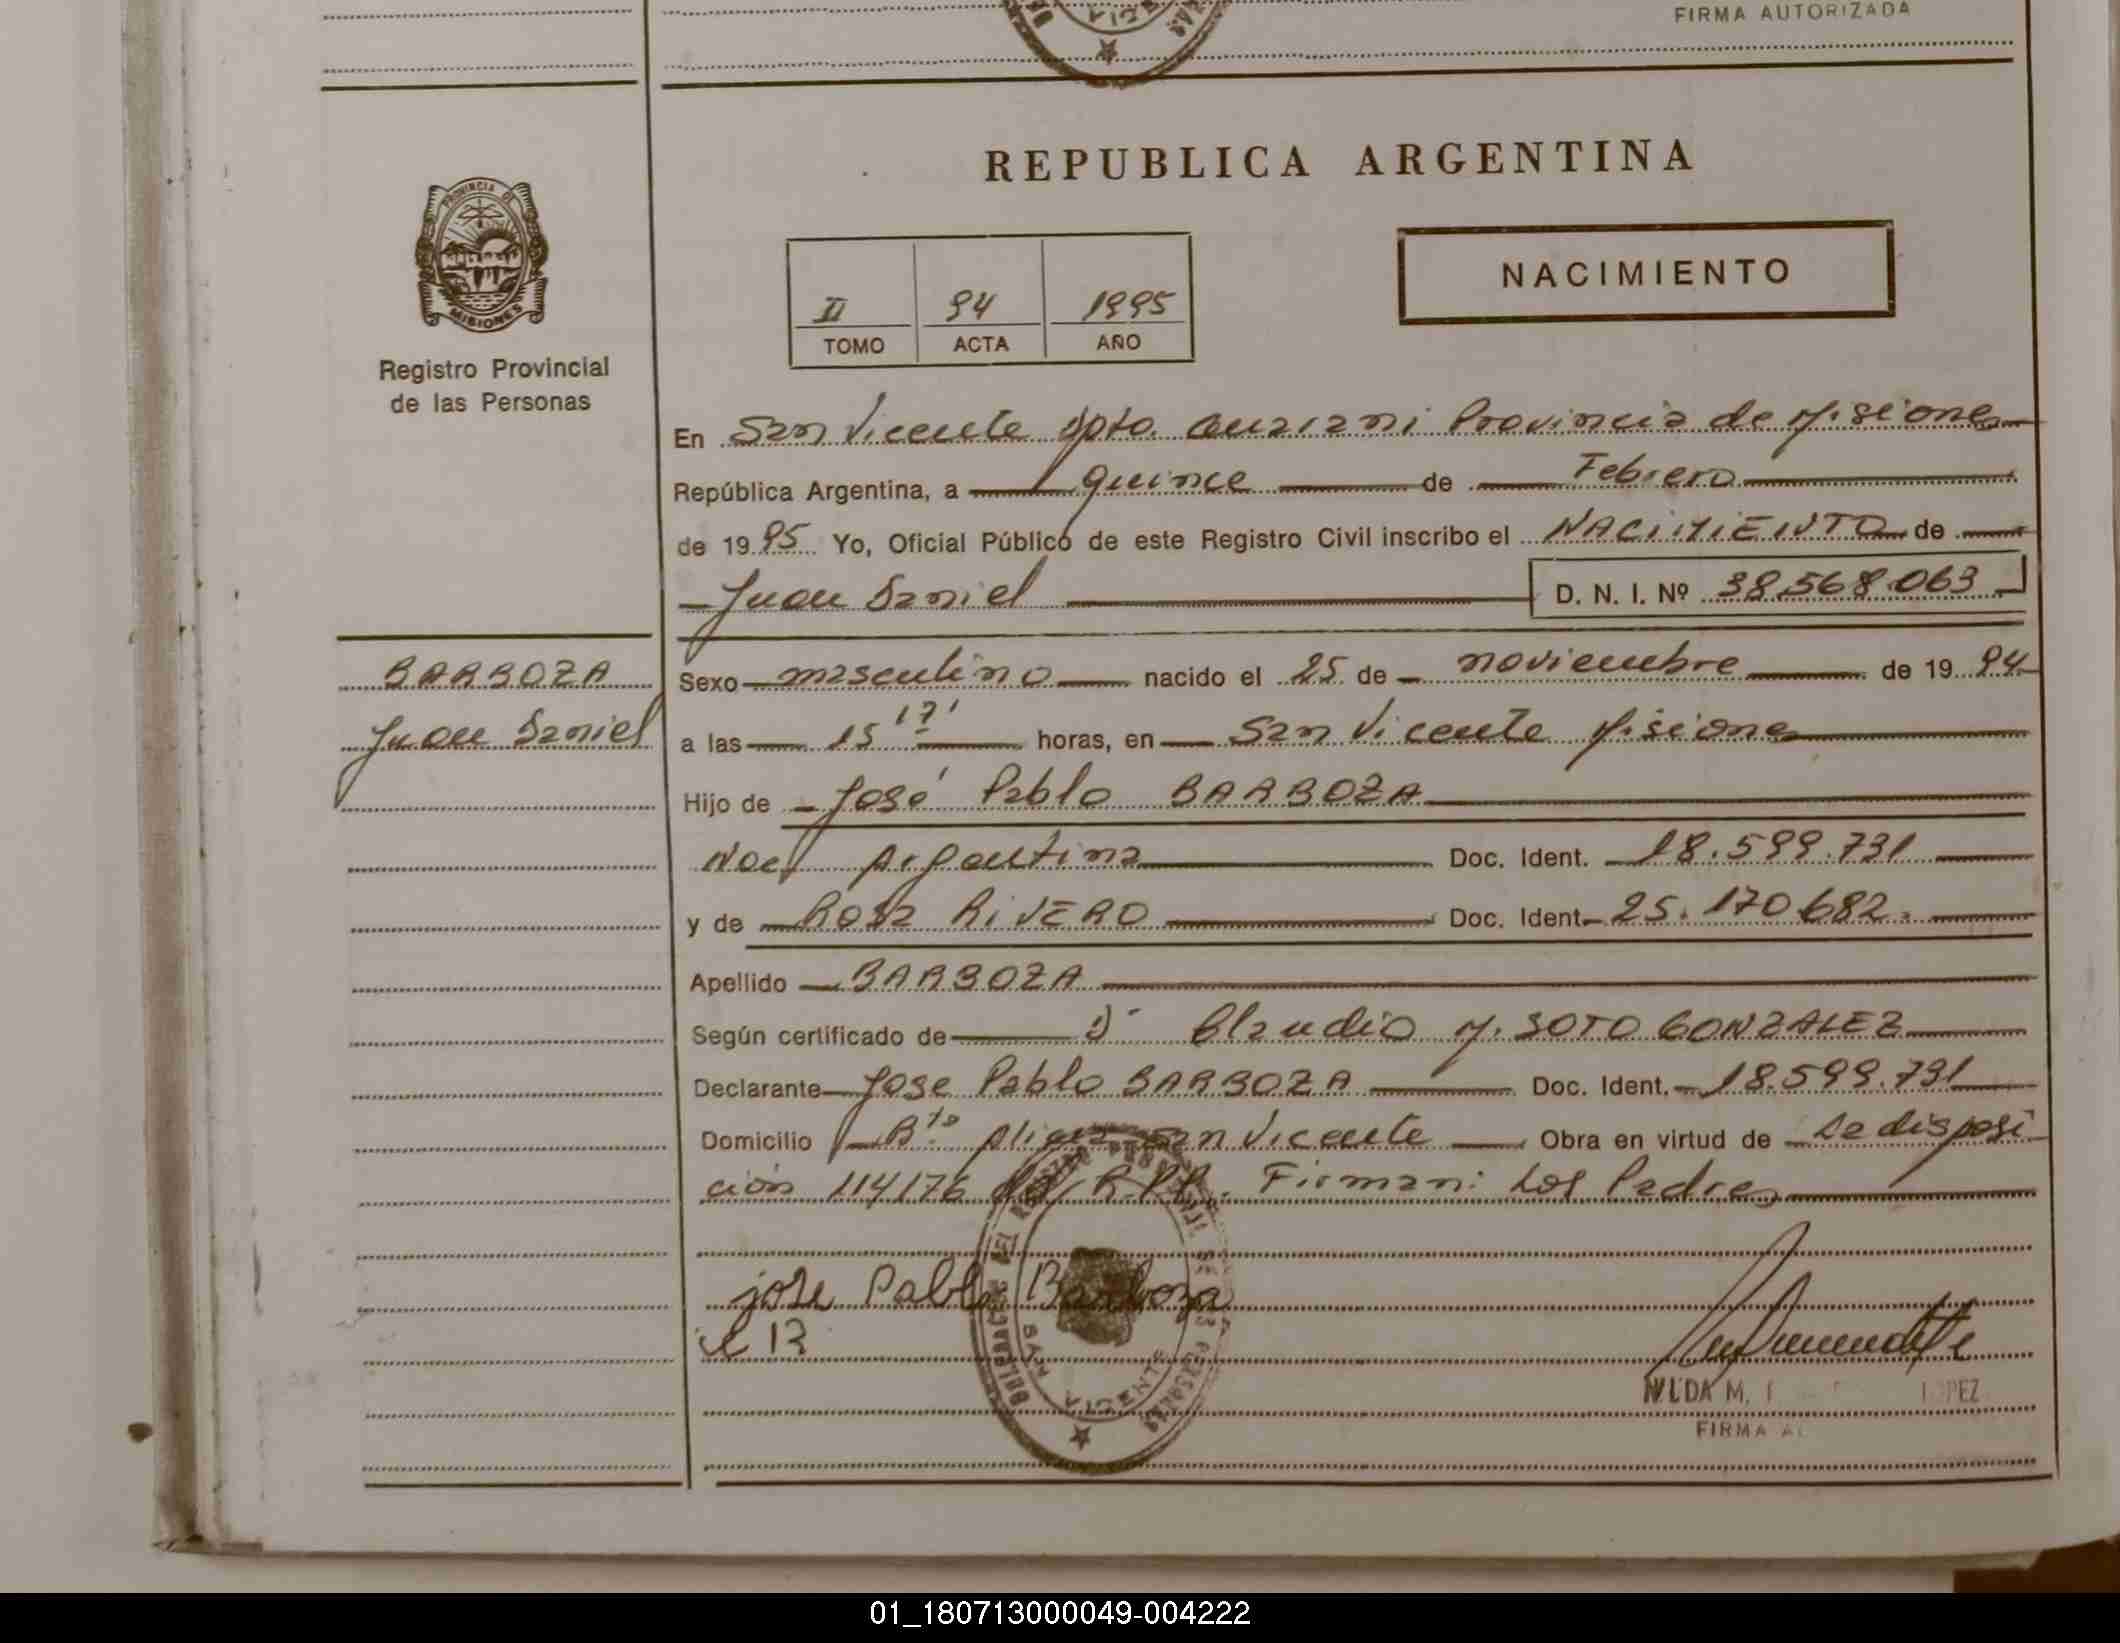 FIRMA AUTORIZADA
REPUBLICA ARGENTINA
PROVINCIA DE
MISIONES
Registro Provincial
de las Personas
NACIMIENTO
II 94 1995
TOMO ACTA AÑO
En San Vicente Dpto. Guarani Provincia de Misiones
República Argentina, a quince de Febrero
de 1995 Yo, Oficial Público de este Registro Civil inscribo el NACIMIENTO de
Juan Daniel D. N. I. Nº 38.568.063
BARBOZA
Juan Daniel
Sexo masculino nacido el 25 de noviembre de 1994
a las 15 horas, en San Vicente Misiones
Hijo de José Pablo BARBOZA
Nac. Argentina Doc. Ident. 18.599.731
y de Rosa RIVERO Doc. Ident. 25.170.682.
Apellido BARBOZA
Según certificado de Claudio M. SOTO GONZALEZ
Declarante Jose Pablo BARBOZA Doc. Ident. 18.599.731
Domicilio San Vicente Obra en virtud de La disposi
ción 114/76 del R.P.P. Firman: Los Padres
jose Pablo Barboza
VICENTE
NILDA M. LOPEZ
FIRMA
01_180713000049-004222